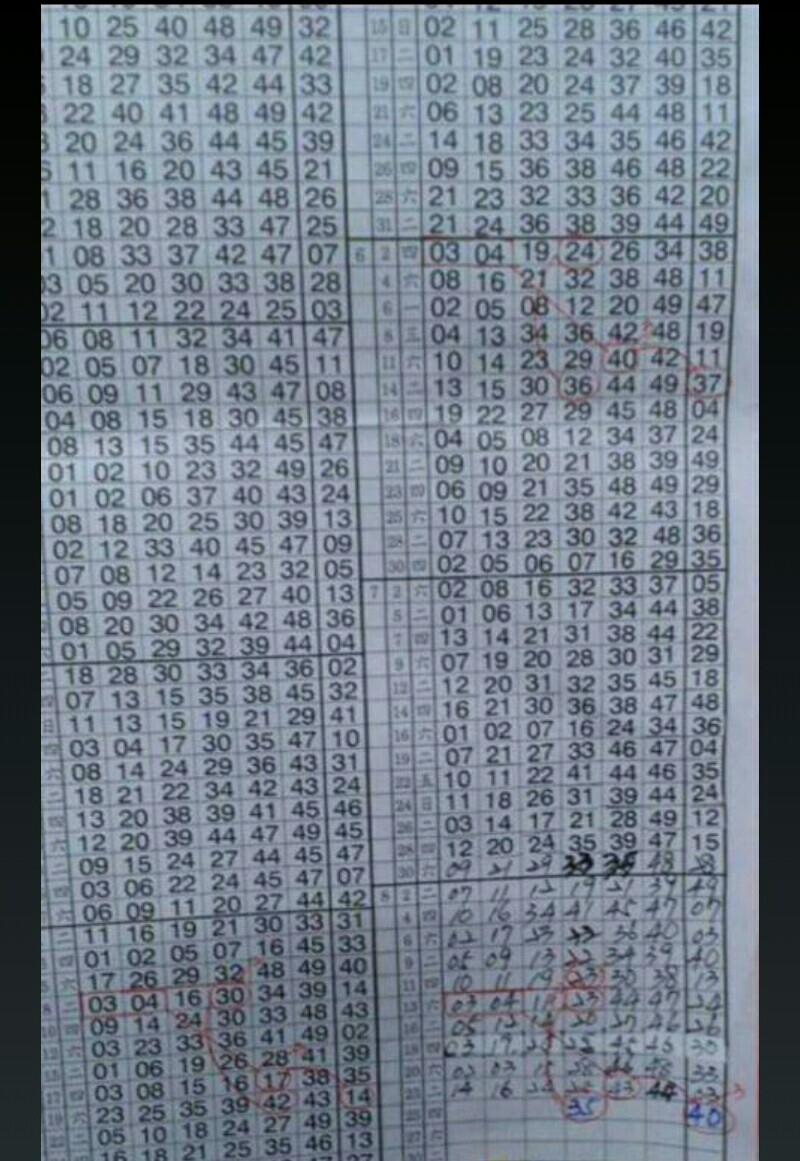 10 25 40 48 49 32
24 29 32 34 47 42
18 27 35 42 44 33
22 40 41 48 49 42
20 24 36 44 45 39
11 16 20 43 45 21
28 36 38 44 48 26
18 20 28 33 47 25
08 33 37 42 47 07
03 05 20 30 33 38 28
02 11 12 22 24 25 03
06 08 11 32 34 41 47
02 05 07 18 30 45 11
06 09 11 29 43 47 08
04 08 15 18 30 45 38
08 13 15 35 44 45 47
01 02 10 23 32 49 26
01 02 06 37 40 43 24
08 18 20 25 30 39 13
02 12 33 40 45 47 09
07 08 12 14 23 32 05
05 09 22 26 27 40 13
08 20 30 34 42 48 36
01 05 29 32 39 44 04
18 28 30 33 34 36 02
07 13 15 35 38 45 32
11 13 15 19 21 29 41
03 04 17 30 35 47 10
08 14 24 29 36 43 31
18 21 22 34 42 43 24
13 20 38 39 41 45 46
12 20 39 44 47 49 45
09 15 24 27 44 45 47
03 06 22 24 45 47 07
06 09 11 20 27 44 42
11 16 19 21 30 33 31
01 02 05 07 16 45 33
17 26 29 32 48 49 40
03 04 16 30 34 39 14
09 14 24 30 33 48 43
03 23 33 36 41 49 02
01 06 19 26 28 41 39
03 08 15 16 17 38 35
23 25 35 39 42 43 14
05 10 18 24 27 49 39
16 18 21 25 35 46 13
15 日 02 11 25 28 36 46 42
17 二 01 19 23 24 32 40 35
19 四 02 08 20 24 37 39 18
21 六 06 13 23 25 44 48 11
24 二 14 18 33 34 35 46 42
26 四 09 15 36 38 46 48 22
28 六 21 23 32 33 36 42 20
31 二 21 24 36 38 39 44 49
6 2 四 03 04 19 24 26 34 38
4 六 08 16 21 32 38 48 11
6 一 02 05 08 12 20 49 47
8 三 04 13 34 36 42 48 19
11 六 10 14 23 29 40 42 11
14 二 13 15 30 36 44 49 37
16 四 19 22 27 29 45 48 04
18 六 04 05 08 12 34 37 24
21 二 09 10 20 21 38 39 49
23 四 06 09 21 35 48 49 29
25 六 10 15 22 38 42 43 18
28 二 07 13 23 30 32 48 36
30 四 02 05 06 07 16 29 35
7 2 六 02 08 16 32 33 37 05
5 二 01 06 13 17 34 44 38
7 四 13 14 21 31 38 44 22
9 六 07 19 20 28 30 31 29
12 二 12 20 31 32 35 45 18
14 四 16 21 30 36 38 47 48
16 六 01 02 07 16 24 34 36
19 二 07 21 27 33 46 47 04
22 五 10 11 22 41 44 46 35
24 日 11 18 26 31 39 44 24
26 二 03 14 17 21 28 49 12
28 四 12 20 24 35 39 47 15
30 六 09 21 29 33
8 2 二 07 11 12 19 21 39 49
4 四 10 16 34 41 45 47 07
6 六 02 17 23 33 36 40 03
9 二 05 09 13 34 39 40
11 四 10 11 19 23 30 38 13
13 六 03 04 23 44 47 24
16 二 05 12
18 四 03
20 六
23 二 14 16 43 44
35 40